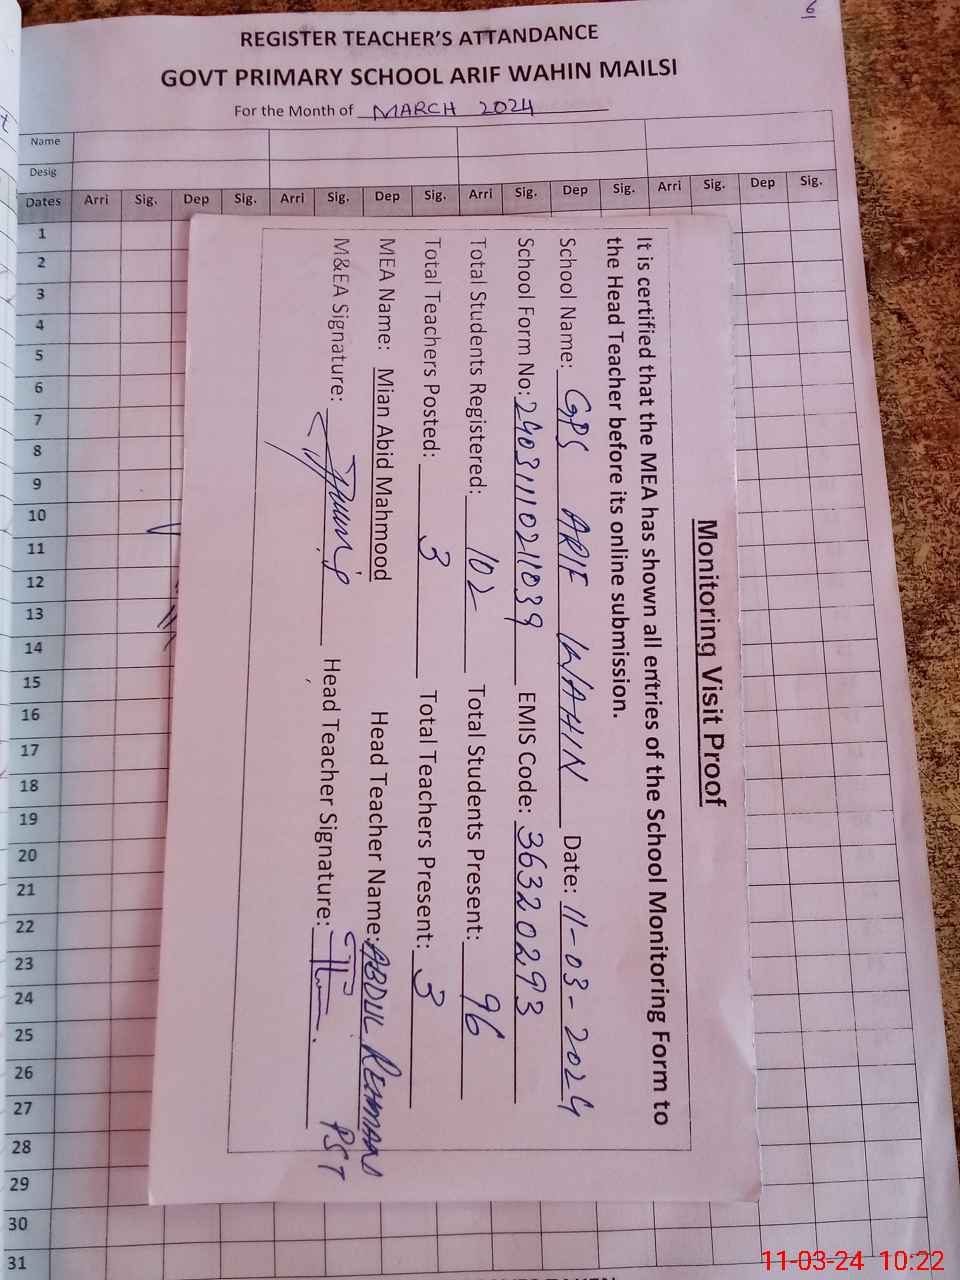 6
REGISTER TEACHER'S ATTANDANCE
GOVT PRIMARY SCHOOL ARIF WAHIN MAILSI
For the Month of MARCH 2024
Name
Desig
Dates Arri Sig. Dep Sig. Arri Sig. Dep Sig. Arri Sig. Dep Sig. Arri Sig. Dep Sig.
1
2
3
4
5
6
7
8
9
10
11
12
13
14
15
16
17
18
19
20
21
22
23
24
25
26
27
28
29
30
31
Monitoring Visit Proof
It is certified that the MEA has shown all entries of the School Monitoring Form to
the Head Teacher before its online submission.
School Name: GPS ARIF WAHIN Date: 11-03-2024
School Form No: 2403111021039 EMIS Code: 36320293
Total Students Registered: 102 Total Students Present: 96
Total Teachers Posted: 3 Total Teachers Present: 3
MEA Name: Mian Abid Mahmood Head Teacher Name: ABDUL REHMAN
M&EA Signature: Head Teacher Signature: PST
11-03-24 10:22